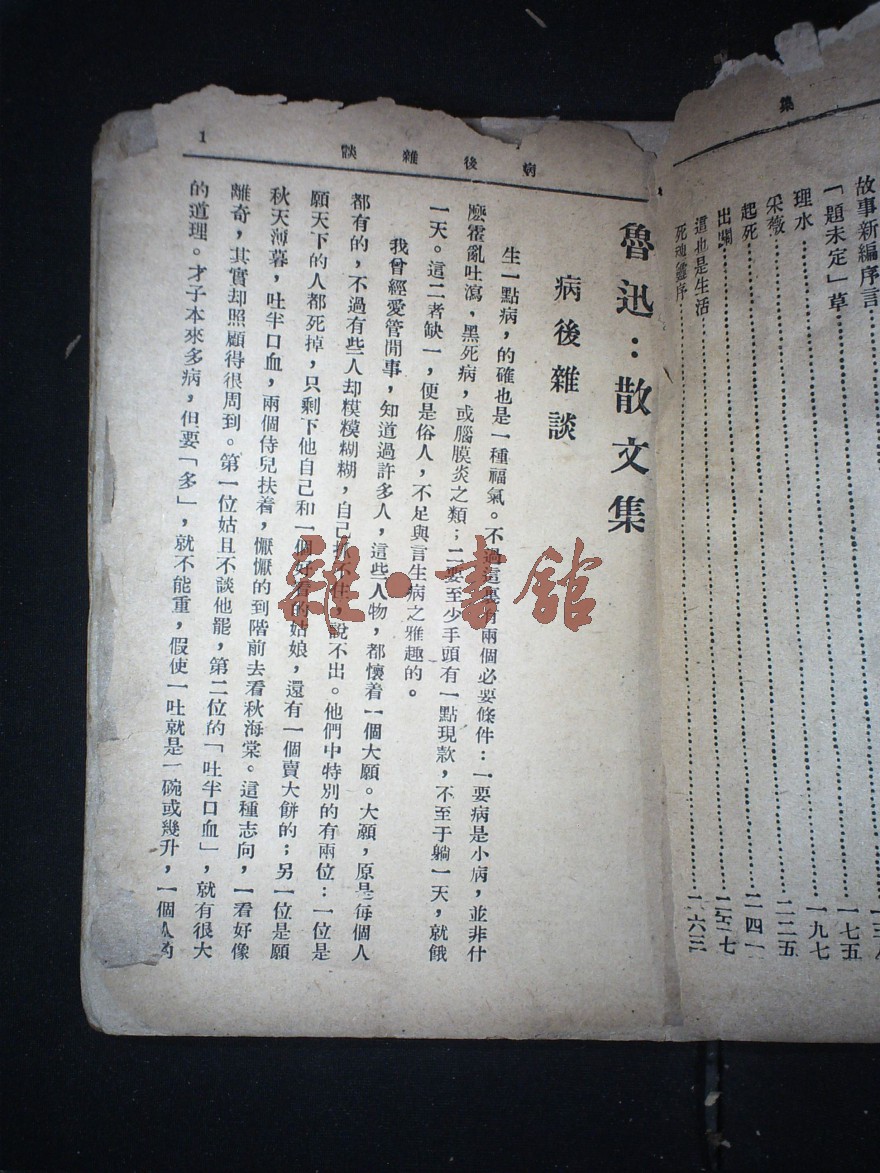 集
故事新編序言
「題未定」草
理水 一七五
采薇 一九七
起死 二二五
出關 二四一
這也是生活
死魂靈序
病後雜談
1
魯迅：散文集
病後雜談
生一點病，的確也是一種福氣。不過這裏有兩個必要條件：一要病是小病，並非什
麼霍亂吐瀉，黑死病，或腦膜炎之類；二要至少手頭有一點現款，不至于躺一天，就餓
一天。這二者缺一，便是俗人，不足與言生病之雅趣的。
我曾經愛管閒事，知道過許多人，這些人物，都懷着一個大願。大願，原是每個人
都有的，不過有些人却糢糢糊糊，自己抓不住，說不出。他們中特別的有兩位：一位是
願天下的人都死掉，只剩下他自己和一個好看的姑娘，還有一個賣大餅的；另一位是願
秋天薄暮，吐半口血，兩個侍兒扶着，懨懨的到階前去看秋海棠。這種志向，一看好像
離奇，其實却照顧得很周到。第一位姑且不談他罷，第二位的「吐半口血」，就有很大
的道理。才子本來多病，但要「多」，就不能重，假使一吐就是一碗或幾升，一個人的
雜·書館